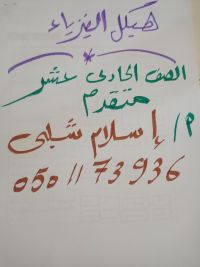 هيكل الفيزياء
الصف الحادى عشر
متقدم
م/ إسلام شلبى
050 11 73 936